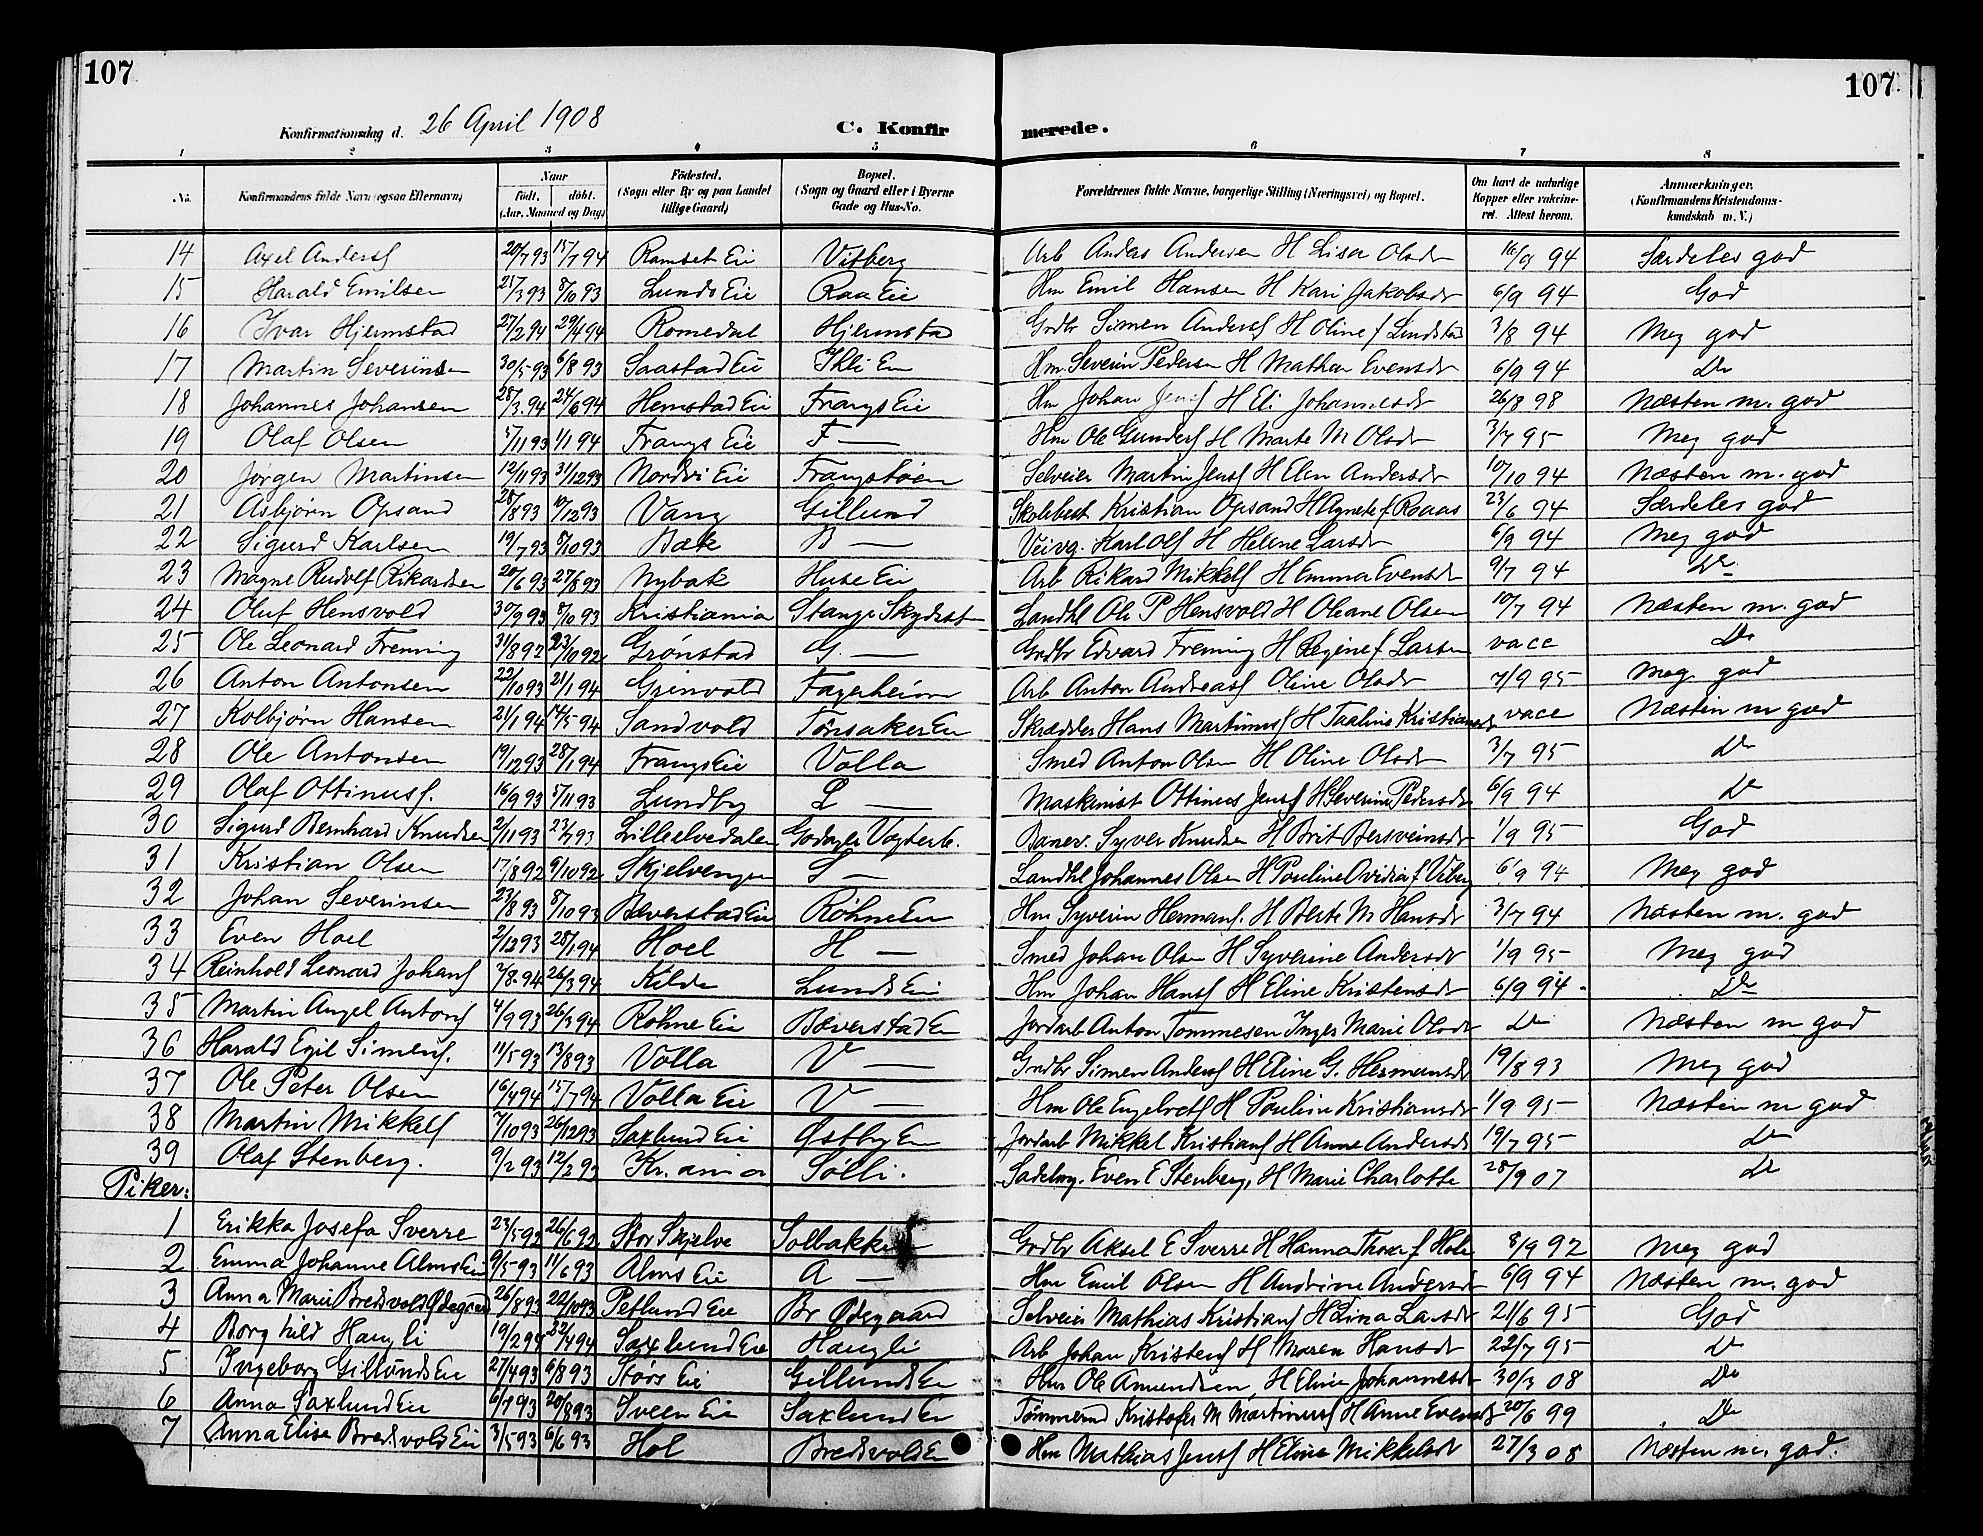 107 107
Konfirmationsdag d. 26 April 1908 C. Konfir merede.
1 2 3 4 5 6 7 8
No. Konfirmandens fulde Navn (ogsaa Efternavn) Naar født, døbt. (Aar, Maaned og Dag) Fødested. (Sogn eller By og paa Landet tillige Gaard) Bopæl. (Sogn og Gaard eller i Byerne Gade og Hus-No. Forældrenes fulde Navne, borgerlige Stilling (Næringsvei) og Bopæl. Om havt de naturlige Kopper eller vakcineret. Attest herom. Anmærkninger. (Konfirmandens Kristendomskundskab m. V.)
14 Axel Anders 20/7 93 15/7 94 Ramset Eie Vitberg Arb Anders Andersen H Lisa Olsdr 94 Særdeles god
15 Harald Emilsen 25/3 93 8/10 93 Lunds Eie Raa Eie Hm Emil Hansen H Kari Jakobsdr 6/9 94 God
16 Ivar Hjermstad 27/2 94 29/4 94 Romedal Hjermstad Grdbr Simen Anders H Oline f Lundsta 3/8 94 Meg god
17 Martin Severinsen 30/5 93 6/8 93 Saastad Eie Ihle Eie Hm Severin Pedersen H Mathea Evensdr 6/9 94 Do
18 Johannes Johansen 28/3 94 24/6 94 Hemstad Eie Frangs Eie Hm Johan Jens H Eli Johannesdr 26/8 98 Næsten m. god
19 Olaf Olsen 5/11 93 1/1 94 Frangs Eie F — Hm Ole Gunders H Marte M Olsdr 3/7 95 Meg god
20 Jørgen Martinsen 12/11 93 31/12 93 Nordvi Eie Frangstøen Selveier Martin Jens H Elen Andersdr 10/10 94 Næsten m. god
21 Asbjørn Opsand 28/8 93 10/12 93 Vang Gillund Skolebest Kristian Opsand H Agnete f Raaas 23/6 94 Særdeles god
22 Sigurd Karlsen 19/7 93 8/10 93 Bæk B — Veivg. Karl Ols H Helene Larsdr 6/9 94 Meg god
23 Magne Rudolf Rikardsen 20/6 93 27/8 93 Nybak Huse Eie Arb Rikard Mikkels H Emma Evensdr 9/7 94 Do.
24 Oluf Hensvold 30/9 93 8/10 93 Kristiania Stange Skydsst Landhl Ole P Hensvold H Oleane Olsen 10/7 94 Næsten m. god
25 Ole Leonard Freming 31/8 92 23/10 92 Grønstad G. — Grdbr Edvard Freming H Regine f Larsen vacc Do
26 Anton Antonsen 22/10 93 21/1 94 Grinvold Fagerheim Arb Anton Andreas Oline Olsdr 7/9 95 meg. god
27 Kolbjørn Hansen 21/1 94 14/5 94 Sandvold Tønsaker Eie Skrædder Hans Martinus H Taaline Kristiansdr vacc Næsten m god
28 Ole Antonsen 19/12 93 28/1 94 Frangs Eie Volla Smed Anton Olsen H Oline Olsdr 3/7 95 Do
29 Olaf Ottinus. 16/9 93 5/11 93 Lundby L — Maskinist Ottinus Jens H Severine Pedersdr 6/9 94 Do
30 Sigurd Bernhard Knudsen 2/11 93 23/7 93 Lilleelvedalen Godager Vogterb. Banev. Syver Knudsen H Brit Bersveinsdr 1/9 95 God
31 Kristian Olsen 17/8 92 9/10 92 Skjelvengen S — Landhl Johannes Olsen H Pouline Ovidia f Viberg 6/9 94 Meg god
32 Johan Severinsen 23/8 93 8/10 93 Bæverstad Eie Røhne Eie Hm Syverin Hermans. H Berte M Hansdr 3/7 94 Næsten m. god
33 Even Hoel 2/12 93 28/1 94 Hoel H — Smed Johan Olsen H Syverine Andersdr 1/9 95 Meg god
34 Reinhold Leonard Johans 94 26/3 94 Kilde Lunds Eie Hm Johan Hans H Eline Kristensdr 6/9 94 Do
35 Martin Angel Antons 4/9 93 26/3 94 Røhne Eie Bæverstad Eie Jordarb Anton Tommesen Inger Marie Olsdr Do Næsten m god
36 Harald Egil Simens. 11/5 93 13/8 93 Volla V — Grdbr Simen Anders H Eline G. Hermansdr 19/8 93 Meg god
37 Ole Peter Olsen 16/4 94 15/7 94 Volla Eie V — Hm Ole Engebrets H Pouline Kristiansdr 1/9 95 Næsten m god
38 Martin Mikkels 7/10 93 26/12 93 Saxlund Eie Østby Eie Jordarb Mikkel Kristians H Anne Andersdr 19/7 95 Do
39 Olaf Stenberg. 9/2 93 12/2 93 Kr.ania Sølli. Sadelmg. Even E Stenberg, H Marie Charlotte 28/9 07 Do
Piker:
1 Erikka Josefa Sverre 23/5 92 26/6 92 Stor Skjelve Solbakken Grdbr Aksel E Sverre H Hanna Thora f Hole 8/9 92 Meg god
2 Emma Johanne Alms Eie 9/5 93 11/6 93 Alms Eie A — Hm Emil Olsen H Andrine Andersdr 6/9 94 Næsten m. god
3 Anna Marie Bredsvold Ødegaard 26/8 93 22/10 93 Peflund Eie Br Ødegaard Selveier Mathias Kristians H Lina Larsdr 21/6 95 God
4 Borghild Haugli 19/2 94 22/4 94 Saxlund Eie Haugli Arb Johan Kristens H Maren Hansdr 22/7 95 Do
5 Ingeborg Gillunds Eie 27/4 93 6/8 93 Størs Eie Gillunds Eie Hm Ole Amundsen, H Eline Johannesdr 30/3 08 Do
6 Anna Saxlund Eie 6/7 93 20/8 93 Sveen Eie Saxlund Eie Tømmermd Kristofer M Martinus H Anne Evensdr 20/6 99 Do
7 Anna Elise Bredsvold Eie 3/5 93 6/6 93 Hol Bredsvold Eie Hm Mathias Jens H Eline Mikkelsdr 27/3 08 Næsten m. god.